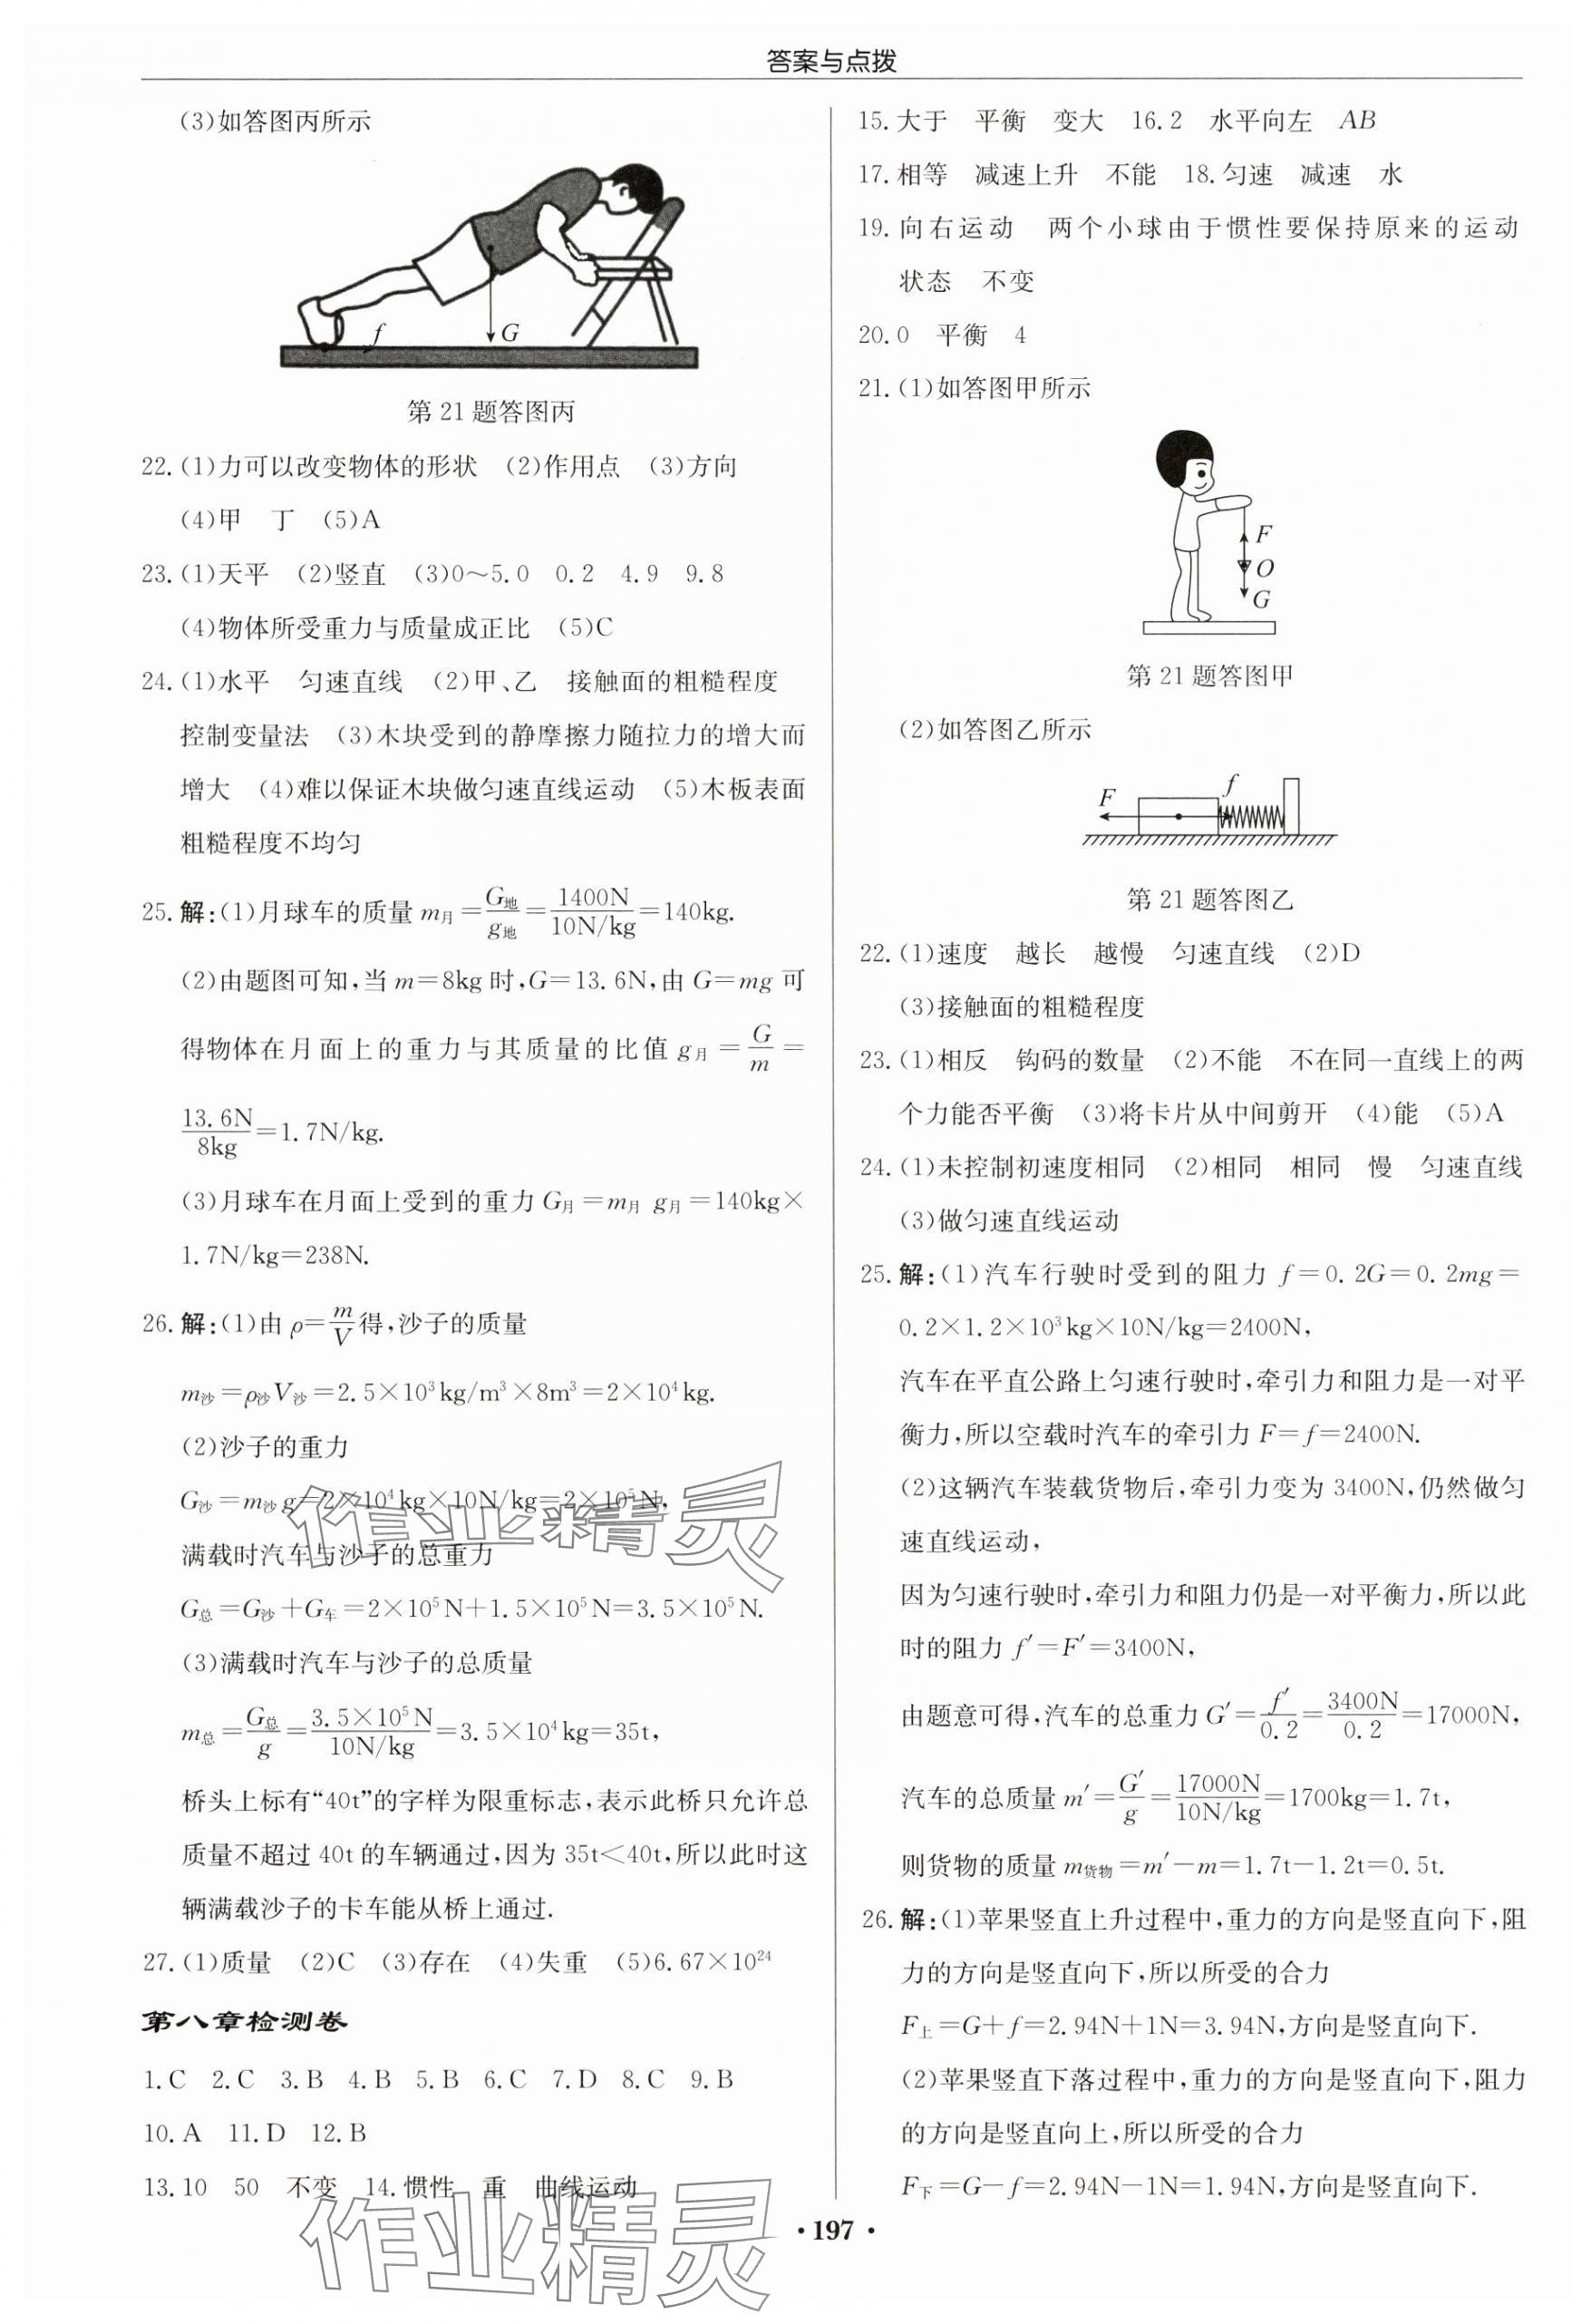 答案与点拨
(3)如答图丙所示
f
G
第 21 题答图丙
22.(1)力可以改变物体的形状 (2)作用点 (3)方向
(4)甲 丁 (5)A
23.(1)天平 (2)竖直 (3)0～5.0 0.2 4.9 9.8
(4)物体所受重力与质量成正比 (5)C
24.(1)水平 匀速直线 (2)甲、乙 接触面的粗糙程度
控制变量法 (3)木块受到的静摩擦力随拉力的增大而
增大 (4)难以保证木块做匀速直线运动 (5)木板表面
粗糙程度不均匀
25. 解:(1)月球车的质量 m月=G地/g地=1400N/10N/kg=140kg.
(2)由题图可知,当 m=8kg 时,G=13.6N,由 G=mg 可
得物体在月面上的重力与其质量的比值 g月=G/m=
13.6N/8kg=1.7N/kg.
(3)月球车在月面上受到的重力 G月=m月 g月=140kg×
1.7N/kg=238N.
26. 解:(1)由 ρ=m/V得,沙子的质量
m沙=ρ沙V沙=2.5×10³kg/m³×8m³=2×10⁴kg.
(2)沙子的重力
G沙=m沙g=2×10⁴kg×10N/kg=2×10⁵N,
满载时汽车与沙子的总重力
G总=G沙+G车=2×10⁵N+1.5×10⁵N=3.5×10⁵N.
(3)满载时汽车与沙子的总质量
m总=G总/g=3.5×10⁵N/10N/kg=3.5×10⁴kg=35t,
桥头上标有“40t”的字样为限重标志,表示此桥只允许总
质量不超过 40t 的车辆通过,因为 35t<40t,所以此时这
辆满载沙子的卡车能从桥上通过.
27.(1)质量 (2)C (3)存在 (4)失重 (5)6.67×10²⁴
第八章检测卷
1.C 2.C 3.B 4.B 5.B 6.C 7.D 8.C 9.B
10.A 11.D 12.B
13.10 50 不变 14.惯性 重 曲线运动
15.大于 平衡 变大 16.2 水平向左 AB
17.相等 减速上升 不能 18.匀速 减速 水
19.向右运动 两个小球由于惯性要保持原来的运动
状态 不变
20.0 平衡 4
21.(1)如答图甲所示
F
O
G
第 21 题答图甲
(2)如答图乙所示
F
f
第 21 题答图乙
22.(1)速度 越长 越慢 匀速直线 (2)D
(3)接触面的粗糙程度
23.(1)相反 钩码的数量 (2)不能 不在同一直线上的两
个力能否平衡 (3)将卡片从中间剪开 (4)能 (5)A
24.(1)未控制初速度相同 (2)相同 相同 慢 匀速直线
(3)做匀速直线运动
25. 解:(1)汽车行驶时受到的阻力 f=0.2G=0.2mg=
0.2×1.2×10³kg×10N/kg=2400N,
汽车在平直公路上匀速行驶时,牵引力和阻力是一对平
衡力,所以空载时汽车的牵引力 F=f=2400N.
(2)这辆汽车装载货物后,牵引力变为 3400N,仍然做匀
速直线运动,
因为匀速行驶时,牵引力和阻力仍是一对平衡力,所以此
时的阻力 f′=F′=3400N,
由题意可得,汽车的总重力 G′=f′/0.2=3400N/0.2=17000N,
汽车的总质量 m′=G′/g=17000N/10N/kg=1700kg=1.7t,
则货物的质量 m货物=m′-m=1.7t-1.2t=0.5t.
26. 解:(1)苹果竖直上升过程中,重力的方向是竖直向下,阻
力的方向是竖直向下,所以所受的合力
F上=G+f=2.94N+1N=3.94N,方向是竖直向下.
(2)苹果竖直下落过程中,重力的方向是竖直向下,阻力
的方向是竖直向上,所以所受的合力
F下=G-f=2.94N-1N=1.94N,方向是竖直向下.
作业精灵
作业精灵
• 197 •